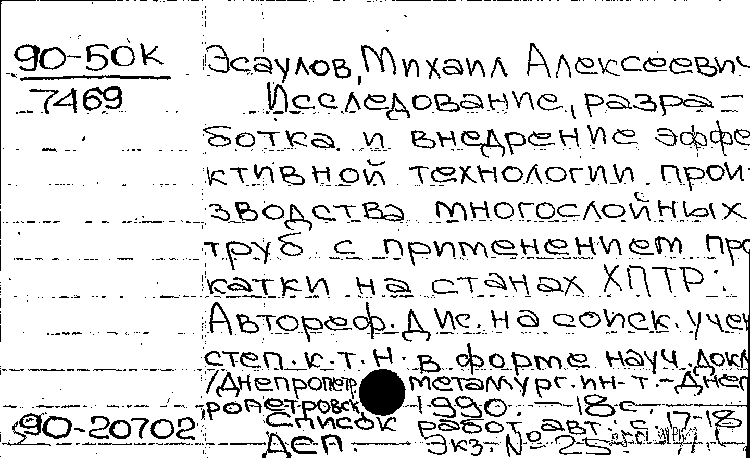 90-50К
7469
Эсаулов, Михаил Алексеевич
Исследование, разра-
ботка и внедрение эффе
ктивной технологии прои-
зводства многослойных
труб с применением про
катки на станах ХПТР:
Автореф. дис. на соиск. учен
степ. к. т. н. в форме науч. докл
/Днепропетр металлург. ин-т. - Днеп
ропетровск, 1990. - 18с.
Список работ авт.: с. 17-18
ДСП. Экз. № 25
90-20702